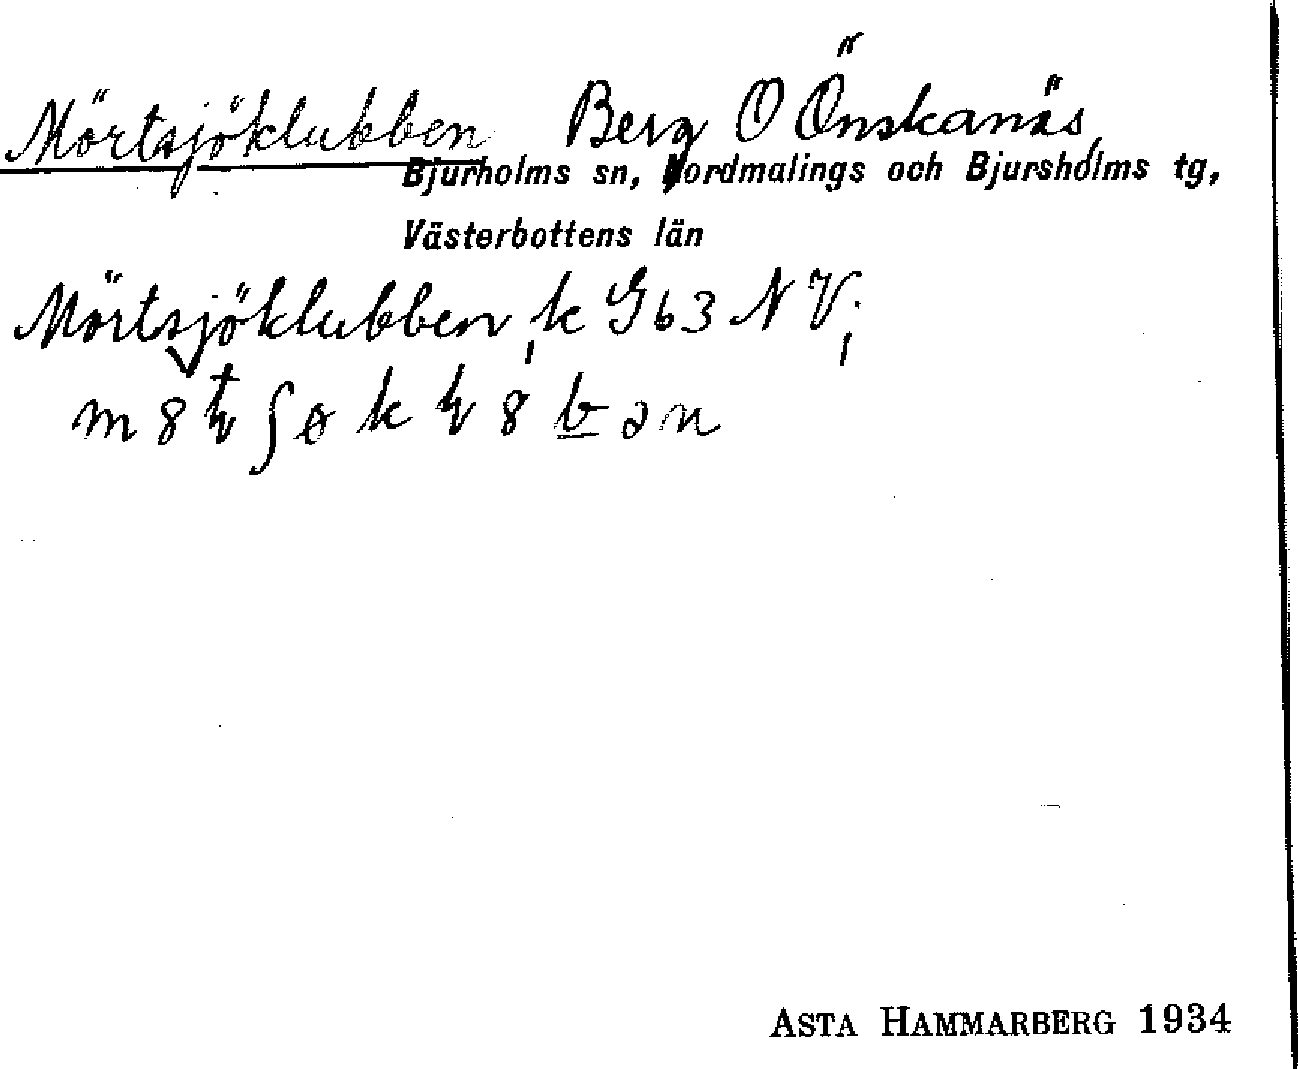 Mörtsjöklubben Berg O Önskanäs,
Bjurholms sn, Nordmalings och Bjursholms tg,
Västerbottens län
Mörtsjöklubben, k G63 NV;
ASTA HAMMARBERG 1934